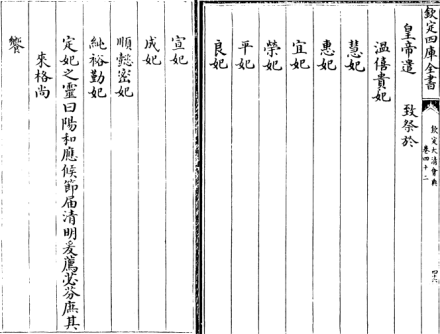 欽定四庫全書
欽定大清會典
卷四十二
皇帝遣 致祭於
温僖貴妃
慧妃
惠妃
宜妃
榮妃
平妃
良妃
宣妃
成妃
順懿密妃
純裕勤妃
定妃之靈曰陽和應候節届清明爰薦苾芬庶其
來格尚
饗